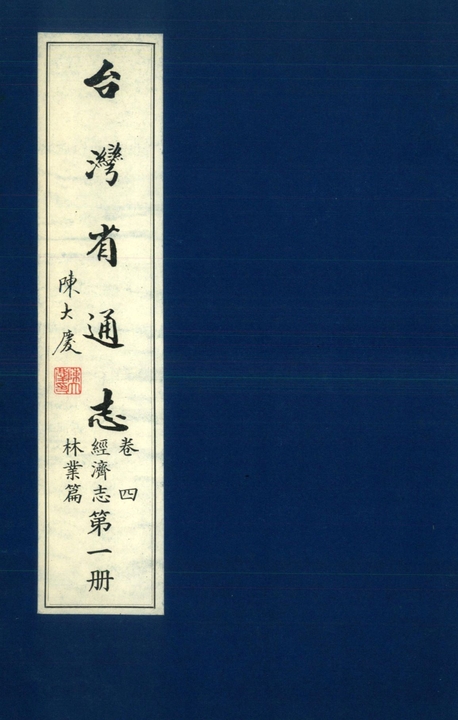 台灣省通志
卷四
經濟志
林業篇
第一册
陳大慶